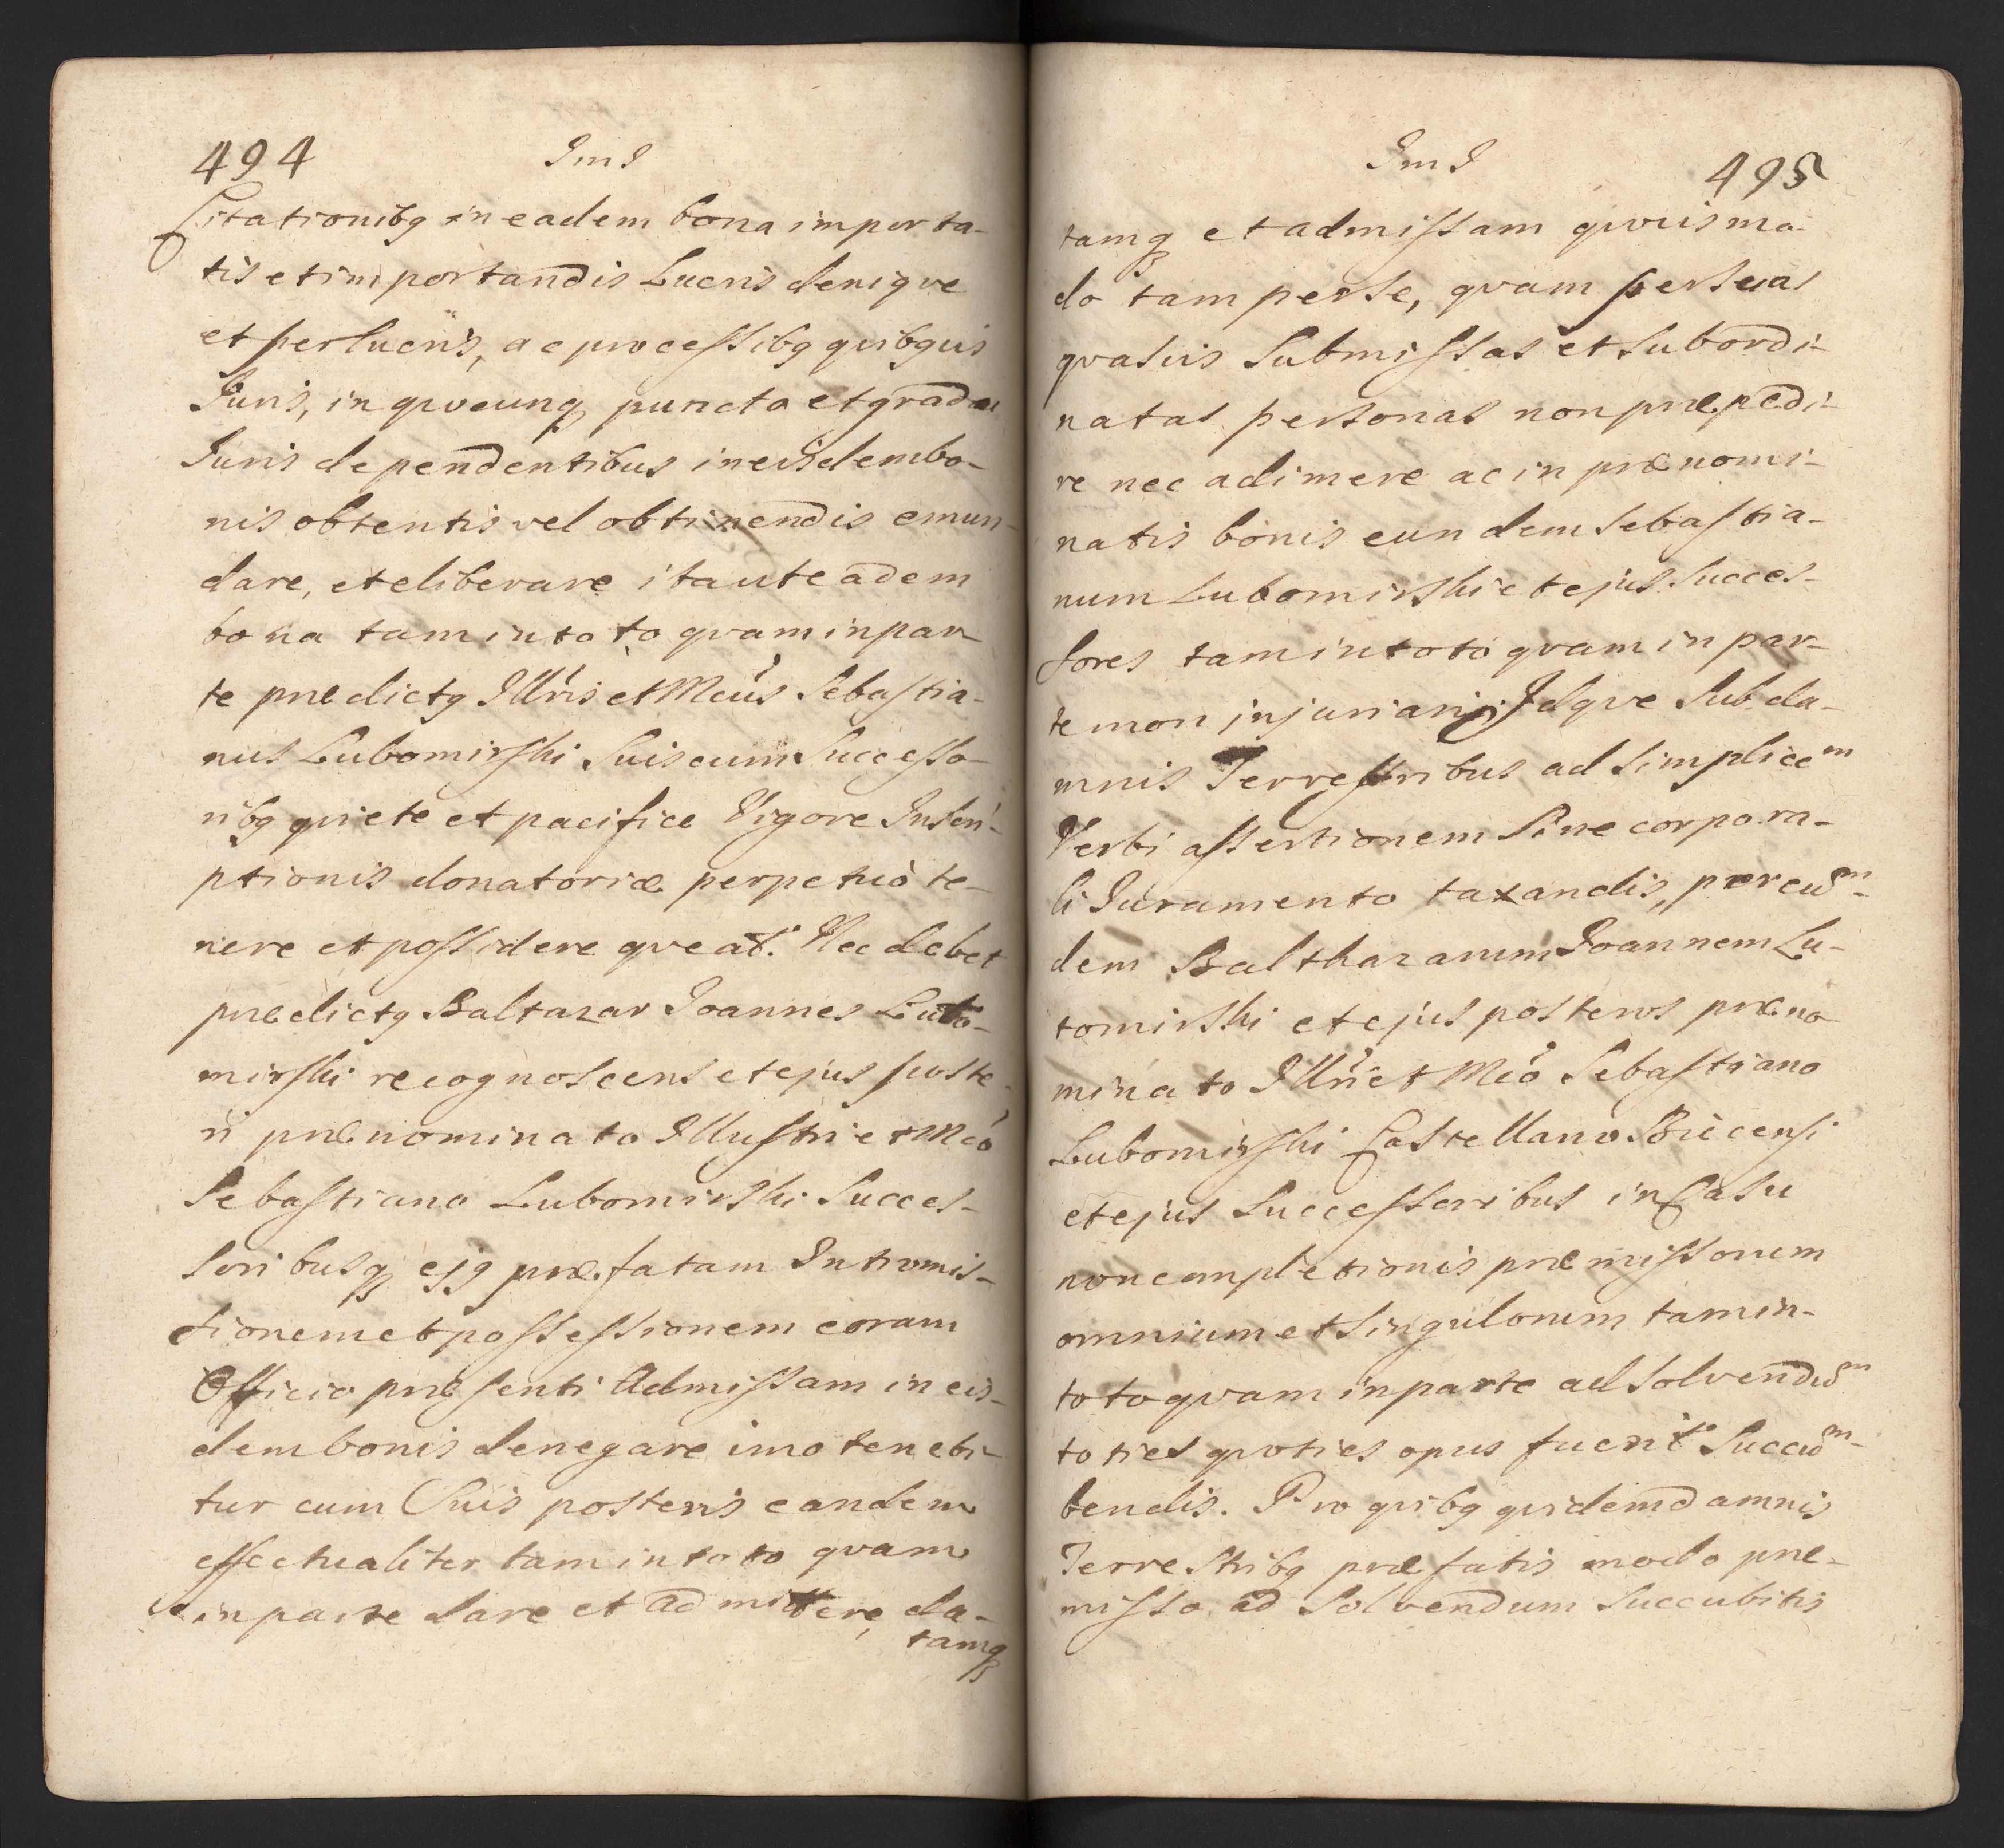 494
ImI
Citationibq in eadem bona importa-
tis et importandis Lucris deniqve
et perlucris, ac processibq qvibqvis
Juris, in qvocunq puncto et gradu
Juris dependentibus in eisdem bo-
nis obtentis vel obtinendis emun-
dare, et eliberare ita ut eadem
bona tam in toto qvam in par-
te prædictq Illris et Mcus Sebastia-
nus Lubomirski Suis cum Successo-
ribq qviete et pacifice Vigore Inscri-
ptionis donatoriæ perpetuò te-
nere et possidere qveat. Nec debet
prædictq Baltazar Joannes Luto-
mirski recognoscens et ejus poste-
ri prænominato Illustri et Mco
Sebastiano Lubomirski Succes-
soribusq ejq præfatam Intromis-
sionem et possessionem coram
Officio præsenti Admissam in eis-
dem bonis denegare imo tenebi-
tur cum Suis posteris eandem
effectualiter tam in toto qvam
in parte dare et admittere, da-
tamq
ImI
495
tamq et admissam qvovismo-
do tam per se, qvam per suas
qvasvis Submissas et Subordi-
natas personas non præpedi-
re nec adimere ac in prænomi-
natis bonis eundem Sebastia-
num Lubomirski et ejus Succes-
sores tam in toto qvam in par-
te non injuriari; Idqve Sub da-
mnis Terrestribus ad Simplicem
Verbi assertionem Sine corpora-
li Juramento taxandis, per eum-
dem Balthazarum Joannem Lu-
tomirski et ejus posteros præno
minato Illri et Mco Sebastiano
Lubomirski Castellano Biecensi
et ejus Successoribus in Casu
non completionis præmissorum
omnium et Singulorum tam in-
toto qvam in parte ad Solvendum
toties qvoties opus fuerit Succum-
bendis. Pro qvibq qvidem damnis
Terrestribq præfatis modo præ-
misso ad Solvendum Succubitis